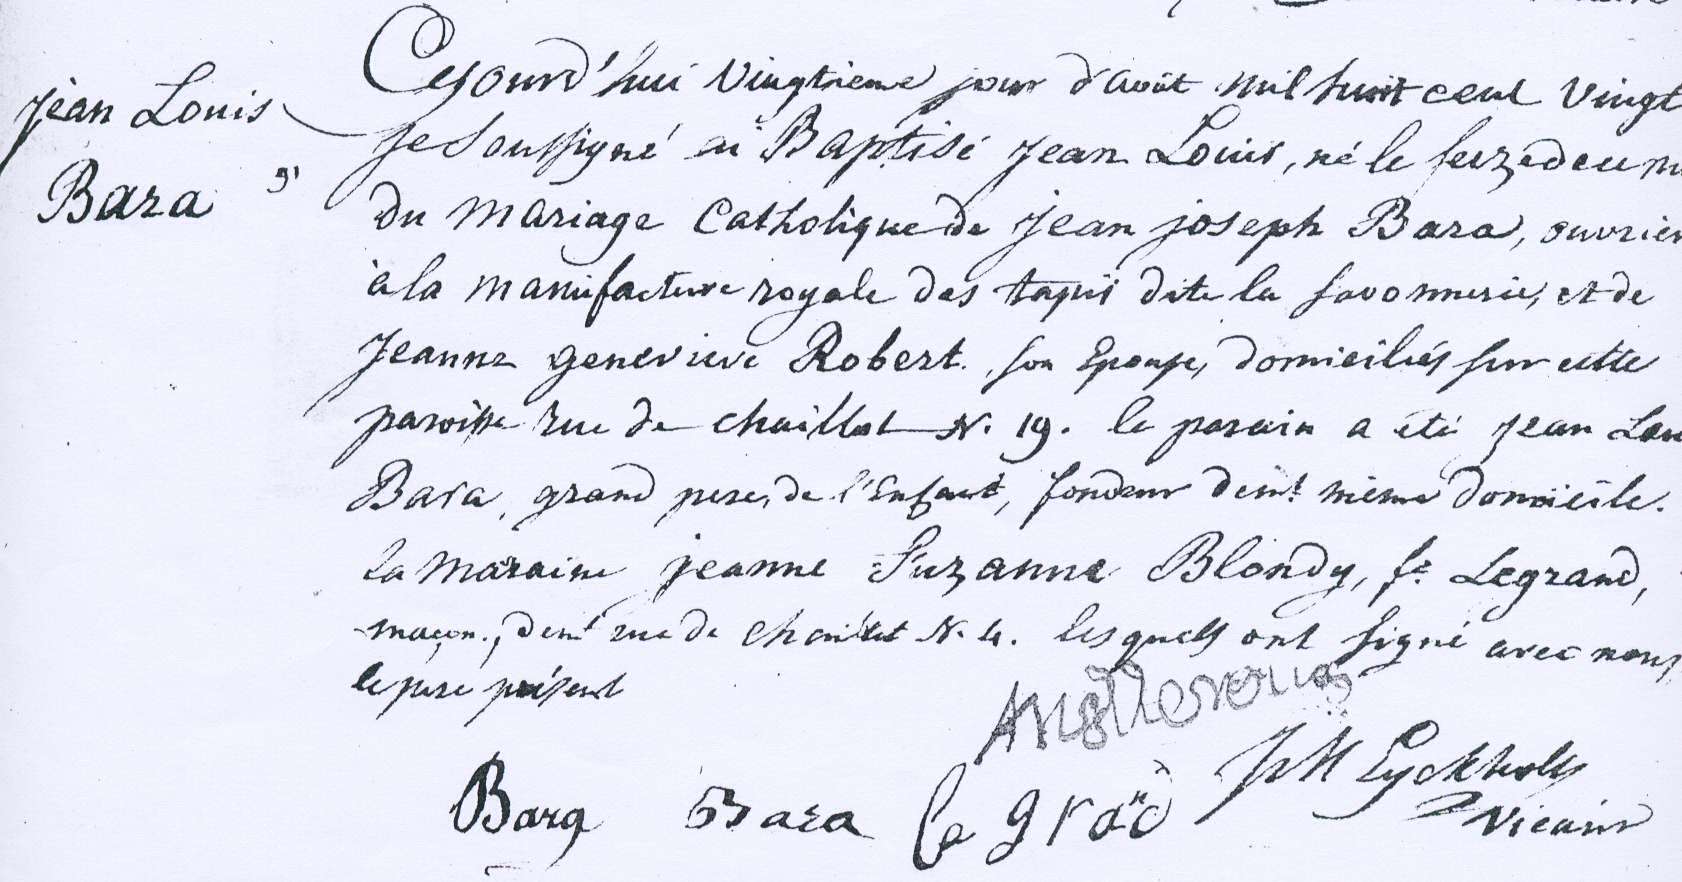 Jean Louis
Bara
Cejourd'hui vingtieme jour d'août mil huit cent vingt
Je soussigné ai Baptisé Jean Louis, né le seize de ce m
du mariage Catholique de Jean joseph Bara, ouvrier
à la manufacture royale des tapis dite la savonnerie, et de
Jeanne genevieve Robert son Epouse, domiciliés sur cette
paroisse rue de chaillot N. 19. le parain a été Jean Lou
Bara, grand pere de l'Enfant, fondeur demt même domicile.
la maraine jeanne Suzanne Blondy, fe Legrand,
maçon, demt rue de chaillot N. 4. lesquels ont signé avec nous
le pere présent
Bara Bara le grand
Eyckholt
Vicaire